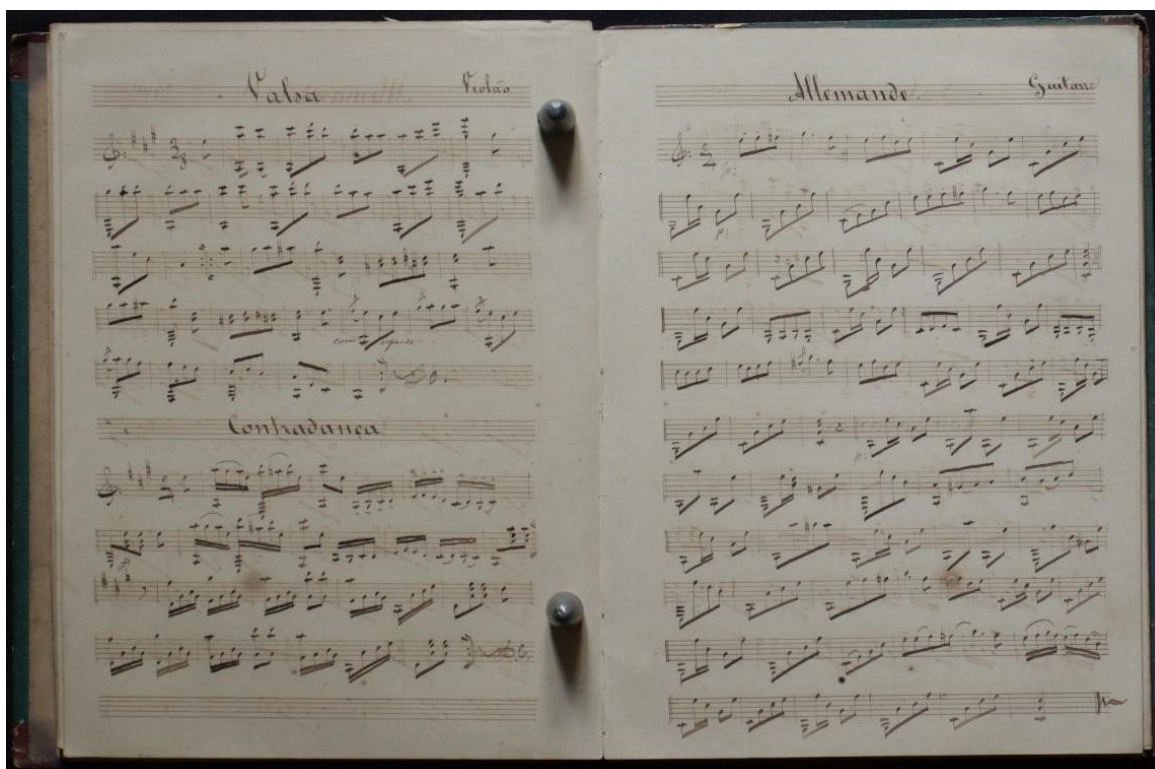 Valsa Violão
Contradança
D.C.
Allemande Guitarre